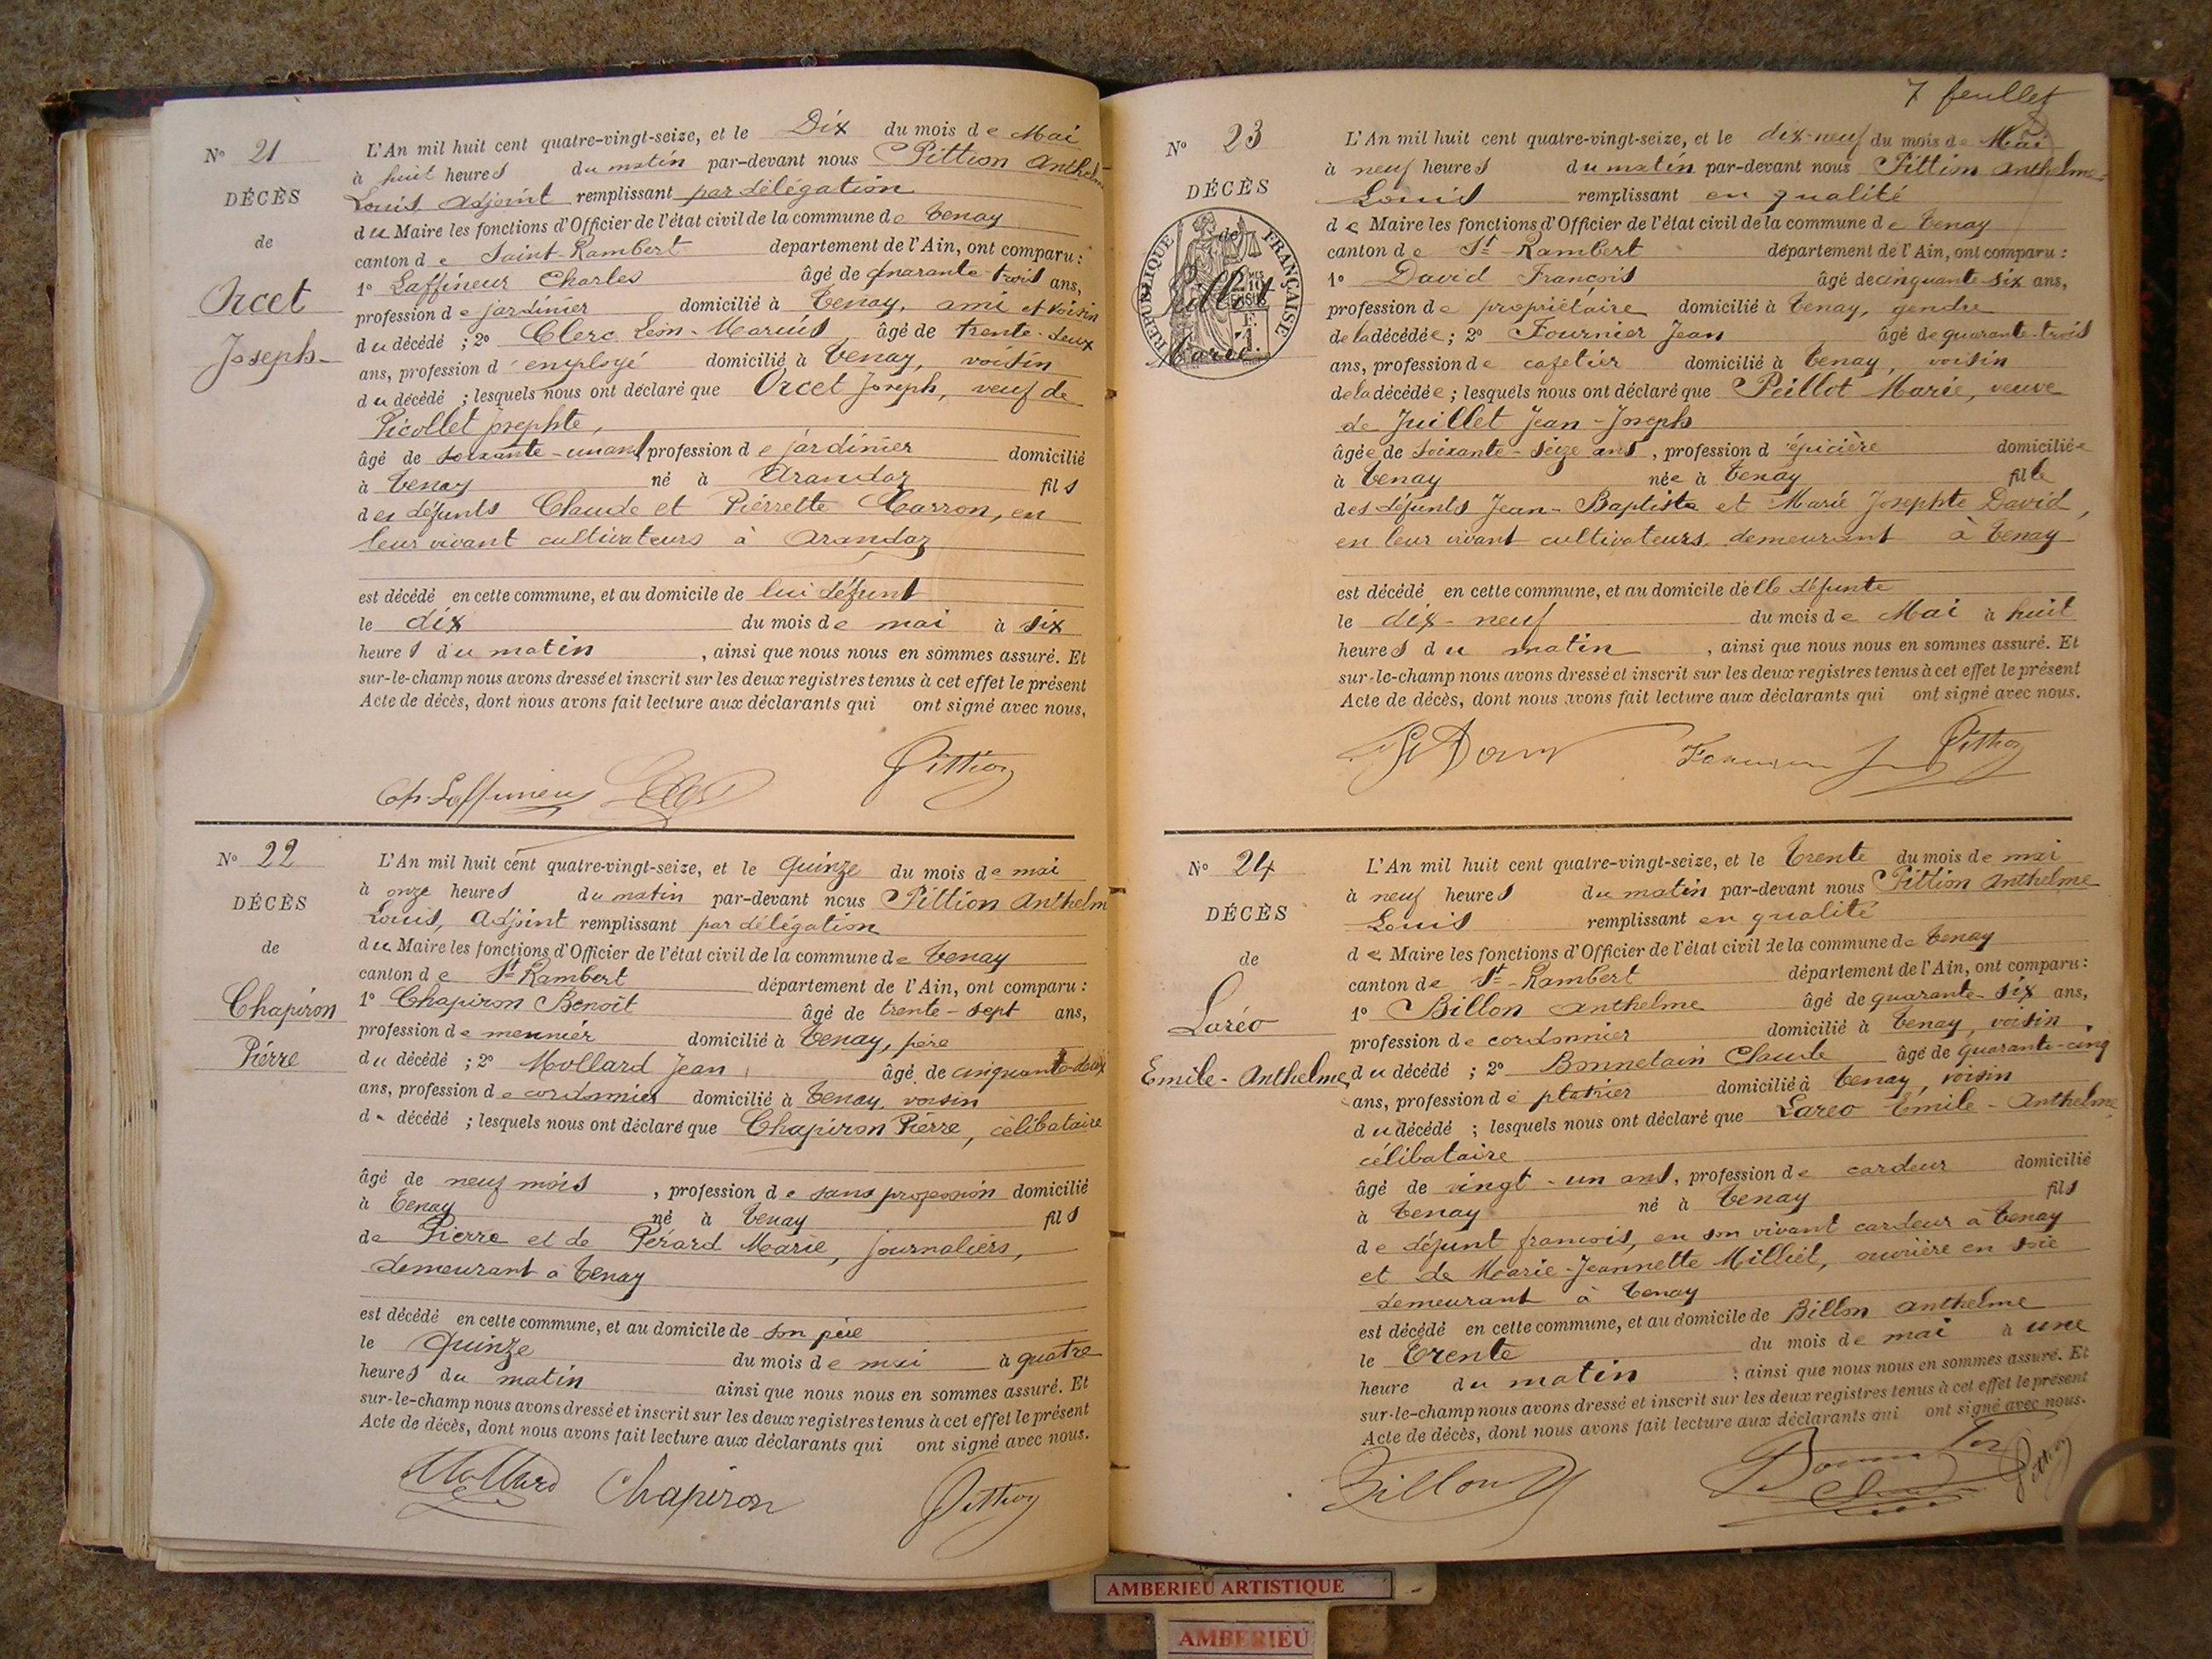 N° 21
DÉCÈS
de
Orcet
Joseph
L'An mil huit cent quatre-vingt-seize, et le Dix du mois de Mai
à huit heures du matin par-devant nous Pittion Anthelme
Louis, Adjoint remplissant par délégation
du Maire les fonctions d'Officier de l'état civil de la commune de Tenay
canton de Saint-Rambert departement de l'Ain, ont comparu :
1° Laffineur Charles âgé de quarante-trois ans,
profession de jardinier domicilié à Tenay, ami et voisin
du décédé ; 2° Clerc Léon-Marius âgé de trente-deux
ans, profession d'employé domicilié à Tenay, voisin
du décédé ; lesquels nous ont déclaré que Orcet Joseph, veuf de
Picollet josephte,
âgé de soixante-un ans, profession de jardinier domicilié
à Tenay né à Arandaz fils
des défunts Claude et Pierrette Carron, en
leur vivant cultivateurs à Arandaz
est décédé en cette commune, et au domicile de lui défunt
le dix du mois de mai à six
heures du matin, ainsi que nous nous en sommes assuré. Et
sur-le-champ nous avons dressé et inscrit sur les deux registres tenus à cet effet le présent
Acte de décès, dont nous avons fait lecture aux déclarants qui ont signé avec nous.
Ch. Laffineur Pittion
N° 22
DÉCÈS
de
Chapiron
Pierre
L'An mil huit cent quatre-vingt-seize, et le quinze du mois de mai
à onze heures du matin par-devant nous Pittion Anthelm
Louis, Adjoint remplissant par délégation
du Maire les fonctions d'Officier de l'état civil de la commune de Tenay
canton de St Rambert département de l'Ain, ont comparu :
1° Chapiron Benoît âgé de trente-sept ans,
profession de meunier domicilié à Tenay, père
du décédé ; 2° Mollard Jean âgé de cinquante-deux
ans, profession de cordonnier domicilié à Tenay, voisin
du décédé ; lesquels nous ont déclaré que Chapiron Pierre, célibataire
âgé de neuf mois, profession de sans profession domicilié
à Tenay né à Tenay fils
de Pierre et de Pérard Marie, journaliers,
demeurant à Tenay
est décédé en cette commune, et au domicile de son père
le Quinze du mois de mai à quatre
heures du matin ainsi que nous nous en sommes assuré. Et
sur-le-champ nous avons dressé et inscrit sur les deux registres tenus à cet effet le présent
Acte de décès, dont nous avons fait lecture aux déclarants qui ont signé avec nous.
Mollard Chapiron Pittion
7 feuillet
N° 23
DÉCÈS
de
Peillot
Marie
RÉPUBLIQUE FRANÇAISE
L'An mil huit cent quatre-vingt-seize, et le dix-neuf du mois de Mai
à neuf heures du matin par-devant nous Pittion Anthelme
Louis remplissant en qualité
de Maire les fonctions d'Officier de l'état civil de la commune de Tenay
canton de St-Rambert département de l'Ain, ont comparu :
1° David François âgé de cinquante-six ans,
profession de propriétaire domicilié à Tenay, gendre
de la décédée ; 2° Fournier Jean âgé de quarante-trois
ans, profession de cafetier domicilié à Tenay, voisin
de la décédée ; lesquels nous ont déclaré que Peillot Marie, veuve
de Juillet Jean-Joseph
âgée de soixante-seize ans, profession d'épicière domiciliée
à Tenay née à Tenay fille
des défunts Jean-Baptiste et Marie Josephte David,
en leur vivant cultivateurs demeurant à Tenay
est décédé en cette commune, et au domicile d'elle défunte
le dix-neuf du mois de Mai à huit
heures du matin, ainsi que nous nous en sommes assuré. Et
sur-le-champ nous avons dressé et inscrit sur les deux registres tenus à cet effet le présent
Acte de décès, dont nous avons fait lecture aux déclarants qui ont signé avec nous.
Pittion
N° 24
DÉCÈS
de
Laréo
Emile-Anthelme
L'An mil huit cent quatre-vingt-seize, et le Trente du mois de mai
à neuf heures du matin par-devant nous Pittion Anthelme
Louis remplissant en qualité
de Maire les fonctions d'Officier de l'état civil de la commune de Tenay
canton de St-Rambert département de l'Ain, ont comparu :
1° Billon Anthelme âgé de quarante-six ans,
profession de cordonnier domicilié à Tenay, voisin
du décédé ; 2° Bonnetain Claude âgé de quarante-cinq
ans, profession de platrier domicilié à Tenay, voisin
du décédé ; lesquels nous ont déclaré que Lareo Emile-Anthelme
célibataire
âgé de vingt-un ans, profession de cardeur domicilié
à Tenay né à Tenay fils
de défunt francois, en son vivant cardeur à Tenay
et de Marie-Jeannette Milliet, ouvrière en soie
demeurant à Tenay
est décédé en cette commune, et au domicile de Billon Anthelme
le Trente du mois de mai à une
heure du matin ; ainsi que nous nous en sommes assuré. Et
sur-le-champ nous avons dressé et inscrit sur les deux registres tenus à cet effet le présent
Acte de décès, dont nous avons fait lecture aux déclarants qui ont signé avec nous.
Billon Pittion
AMBERIEU ARTISTIQUE
AMBERIEU